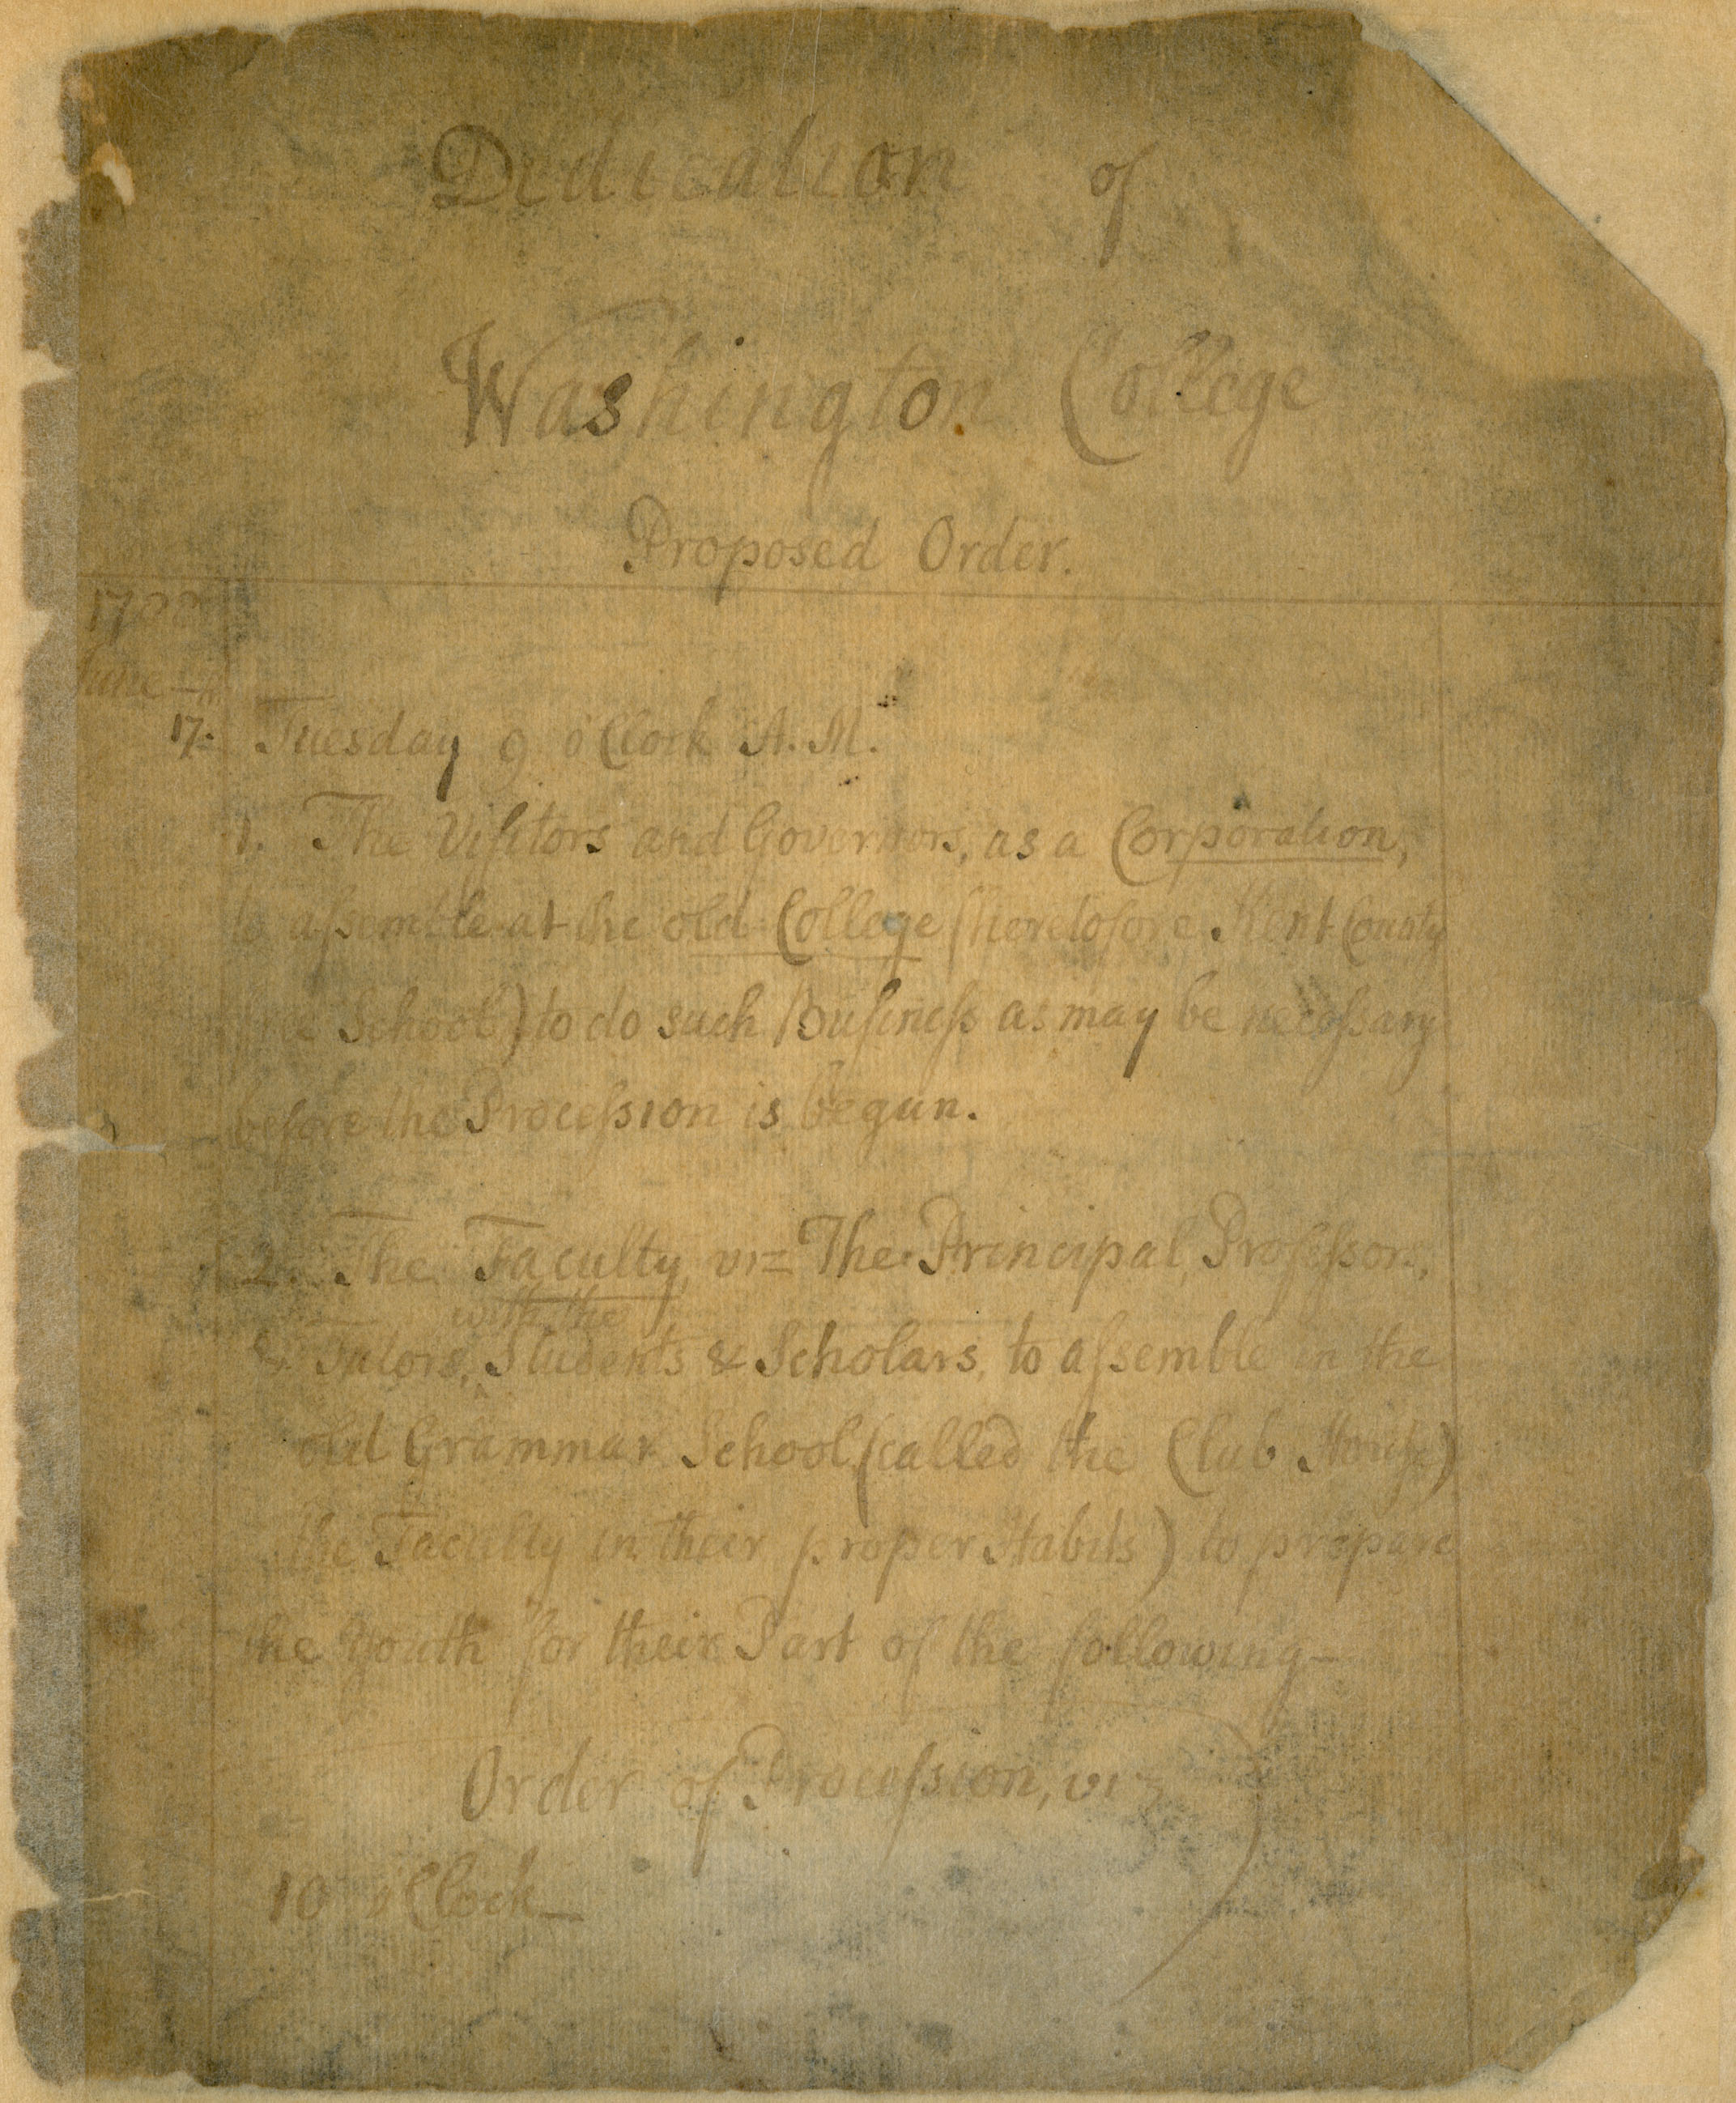 Dedication of
Washington College
Proposed Order.
June
17. Tuesday 9 o'Clock A.M.
1. The Visitors and Governors, as a Corporation,
to assemble at the old College (heretofore Kent County
School) to do such Business as may be necessary
before the Procession is began.
2. The Faculty viz The Principal, Professors,
with the
& Tutors, Students & Scholars, to assemble in the
old Grammar School (called the Club House)
the Faculty in their proper Habits) to prepare
the Youth for their Part of the following—
Order of Procession, viz
10 o'Clock—